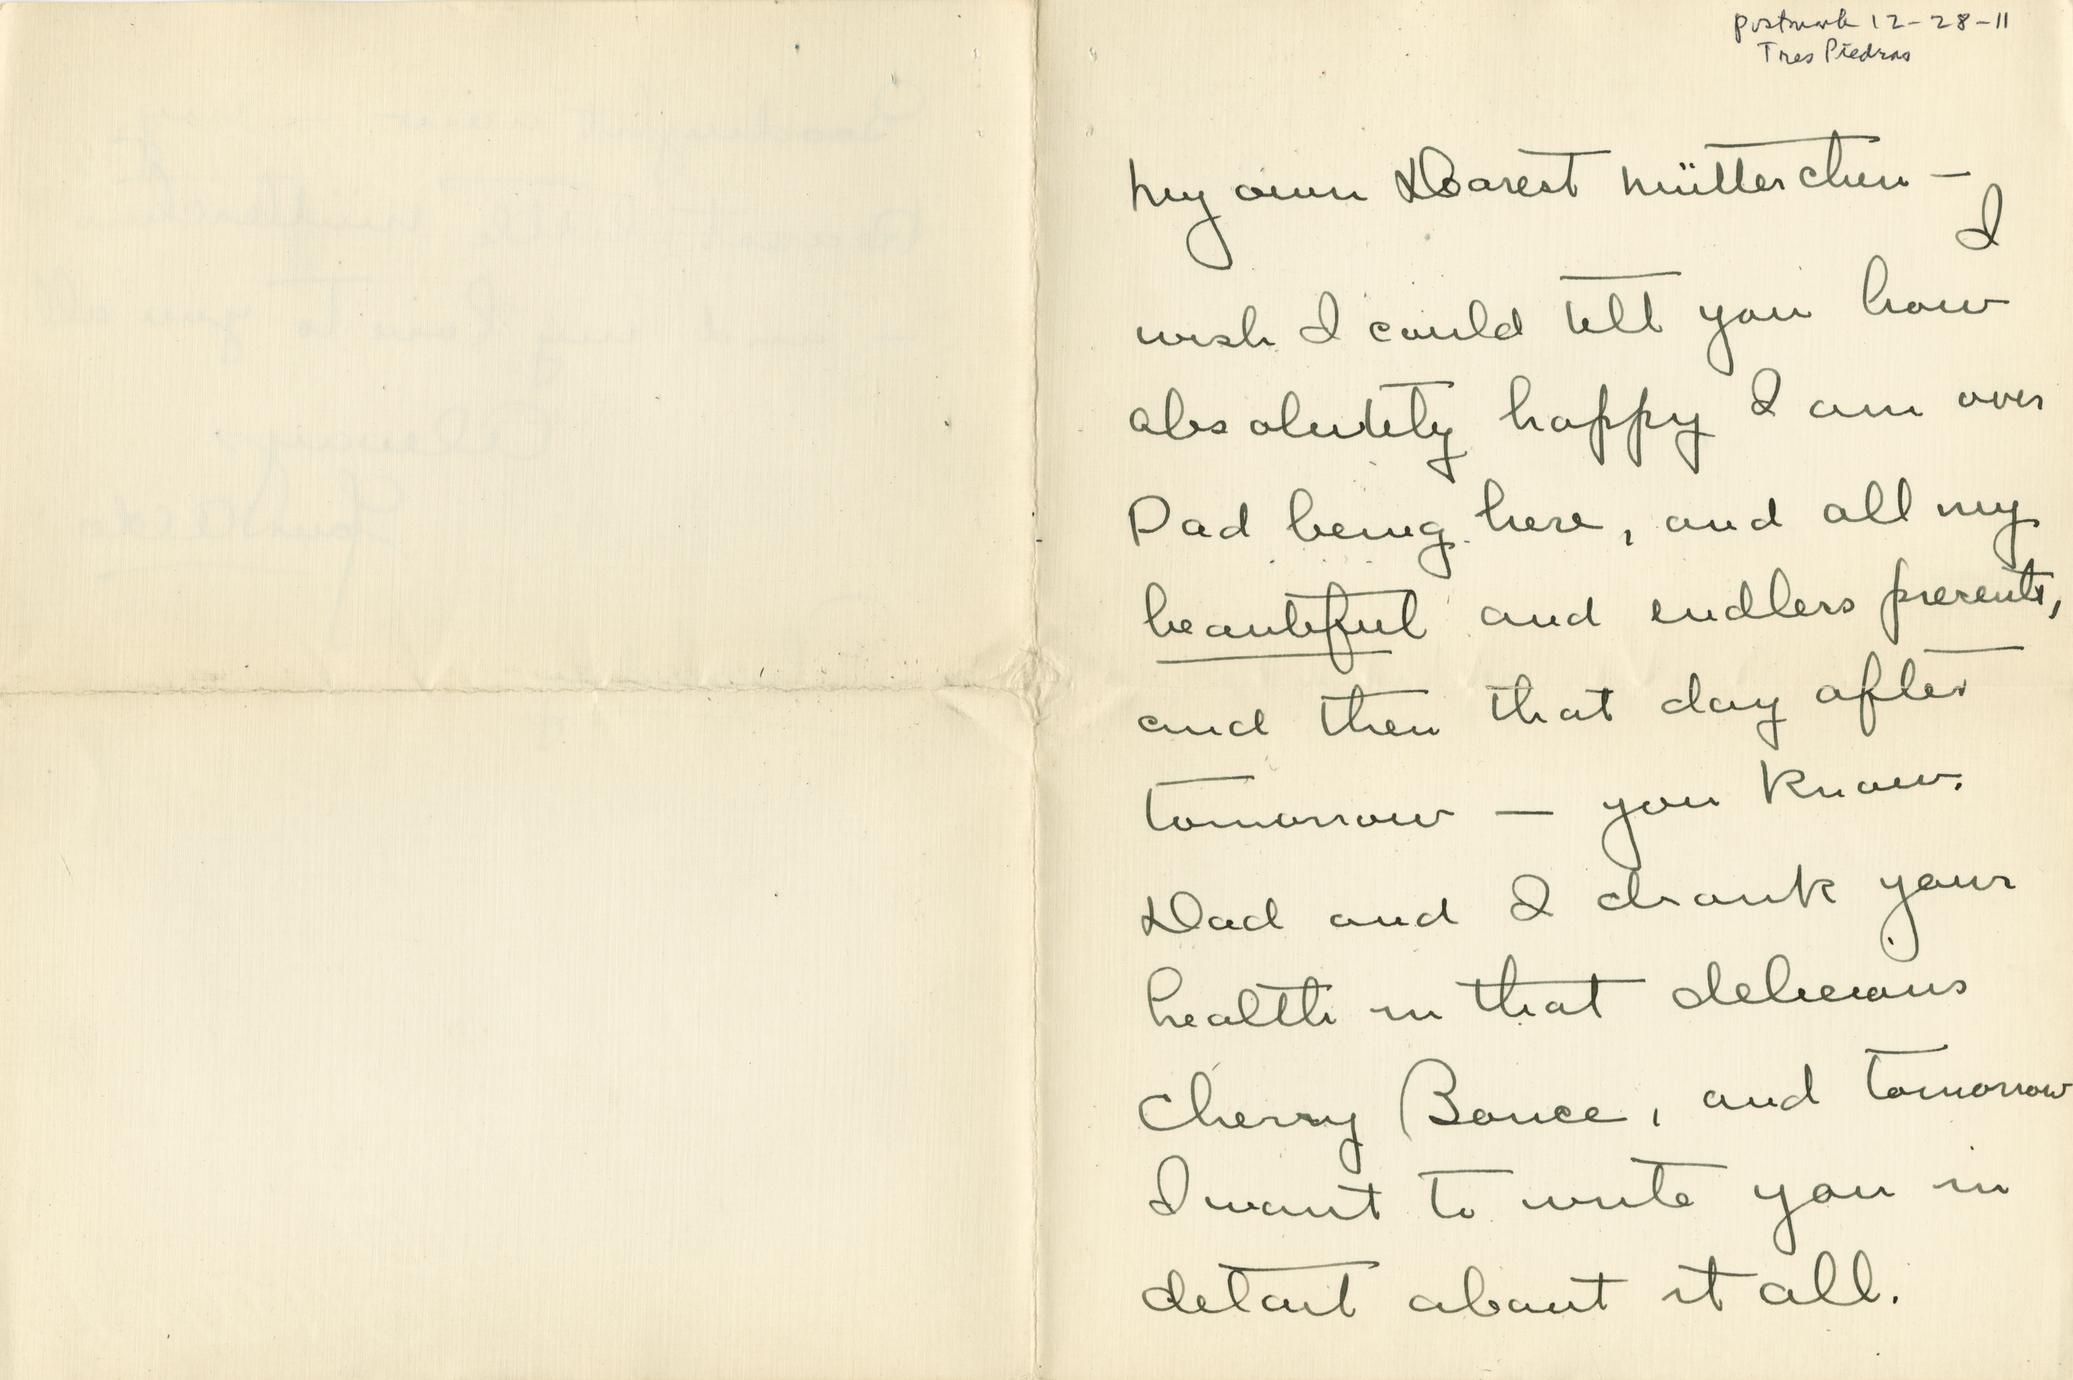 postmark 12-28-11
Tres Piedras
My own Dearest Mütterchen –
I
wish I could tell you how
absolutely happy I am over
Dad being here, and all my
beautiful and endless presents,
and then that day after
tomorrow — you know.
Dad and I drank your
health in that delicious
Cherry Bounce, and tomorrow
I want to write you in
detail about it all.